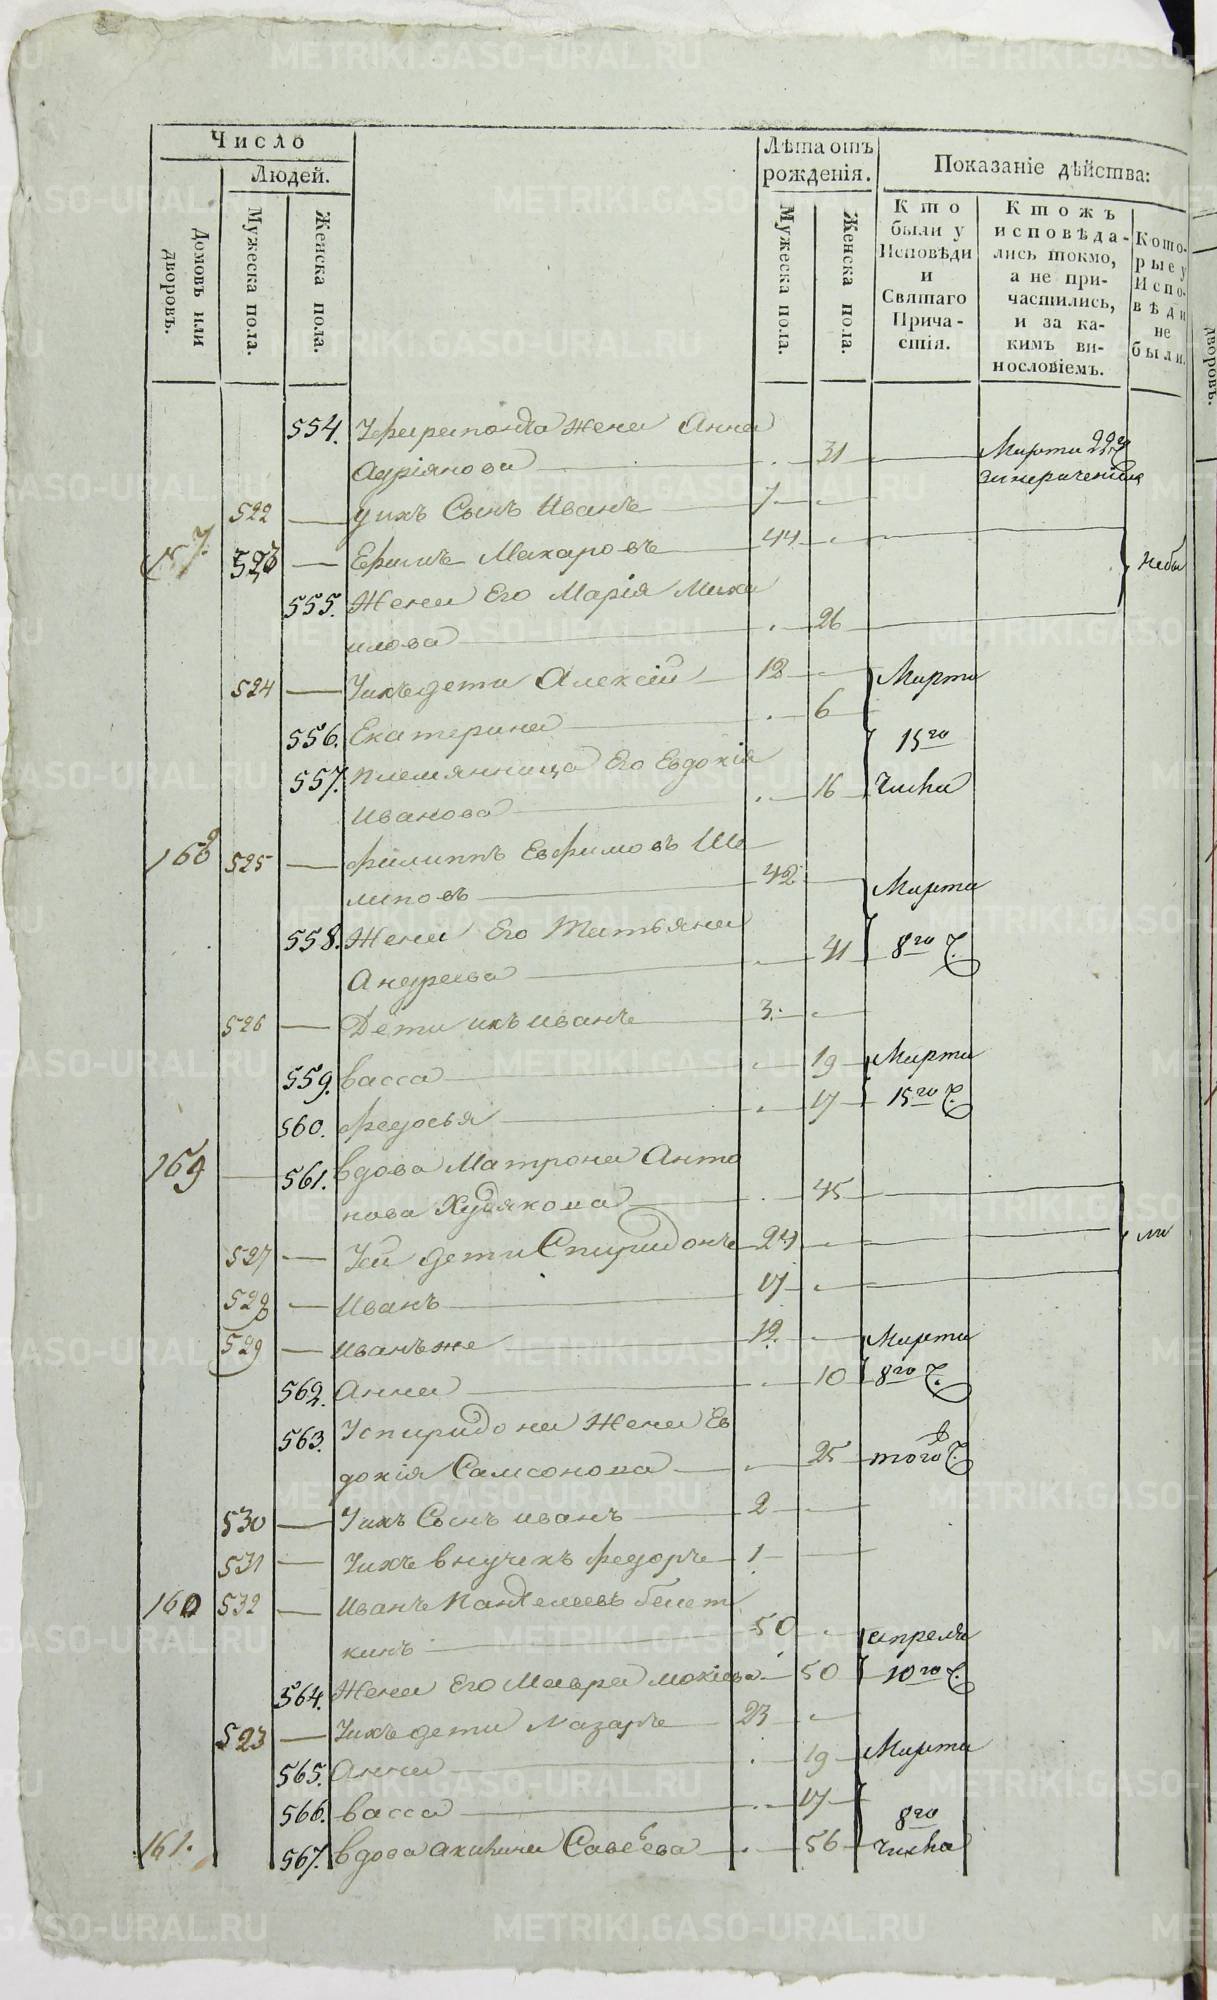 Число
Людей.
Домовъ или дворовъ.
Мужеска пола.
Женска пола.
Лѣта отъ рожденія.
Мужеска пола.
Женска пола.
Показаніе дѣйства:
Кто были у Исповѣди и Святаго Прича-стія.
Ктожъ исповѣда-лись токмо, а не при-частились, и за ка-кимъ ви-нословіемъ.
Кото-рые у Испо-вѣди не были.
554. Уферапонта Жена Анна
Адріянова 31 Марта 22 Ч
522 — уихъ Сынъ Иванъ 7
523 — Ефимъ Макаровъ 44 небы
555. Жена Его Марія Миха
илова 26
524 — Уихъ дети Алексій 12 Марта
556. Екатерина 6 15го
557. племянница Его Евдокія
Иванова 16 Числа
525 — Филиппъ Евфимовъ Ши
липовъ 42 Марта
558. Жена Его Татьяна
Андреева 41 8го Ч.
526 — Дети ихъ Иванъ 3.
559. васса 19 Марта
560. федосья 17 15го Ч.
159 — 561. вдова Матрона Анто
нова Худякова 45
527 — Уей дети Спиридонъ 24 ли
528 — Иванъ 17
529 — Иванъ же 12. Марта
562. Анна 10 8го Ч.
563. Успиридона Жена Ев
докія Самсонова 25 того Ч.
530 — Уихъ Сынъ иванъ 2
531 — Уихъ внучекъ федоръ 1
160 532 — Иванъ Пантелеевъ
кинъ 50 апреля
564. Жена Его Мавра мокіева 50 10го Ч.
523 — Уихъ дети Лазарь 23
565. Анна 19 Марта
566. васса 17 8го
161. 567. вдова Акилина Савеева 56 Числа
METRIKI.GASO-URAL.RU